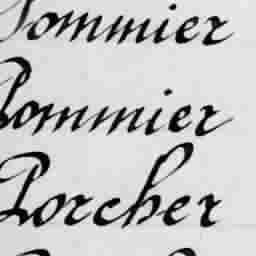 Pommier
Pommier
Porcher